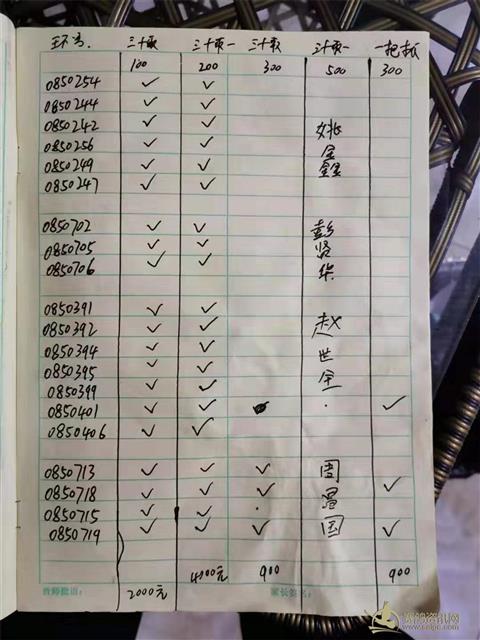 环号. 三十取 三十取一 三十取 三十取一 一把抓
100 200 300 500 300
0850254 ✓ ✓
0850244 ✓ ✓
0850242 ✓ ✓ 姚
0850256 ✓ ✓ 金
0850249 ✓ ✓ 鑫
0850247 ✓ ✓
0850702 ✓ ✓ 彭
0850705 ✓ ✓ 贤
0850706 ✓ ✓ 华
0850391 ✓ ✓
0850392 ✓ ✓ 赵
0850394 ✓ ✓ 世
0850395 ✓ ✓ 全
0850399 ✓ ✓
0850401 ✓ ✓ ✓
0850406 ✓ ✓
0850713 ✓ ✓ ✓ 周
0850718 ✓ ✓ ✓ ✓
0850715 ✓ ✓
0850719 ✓ ✓ ✓ 国 ✓
2000元 4000元 900 900
教师批语: 家长签名: